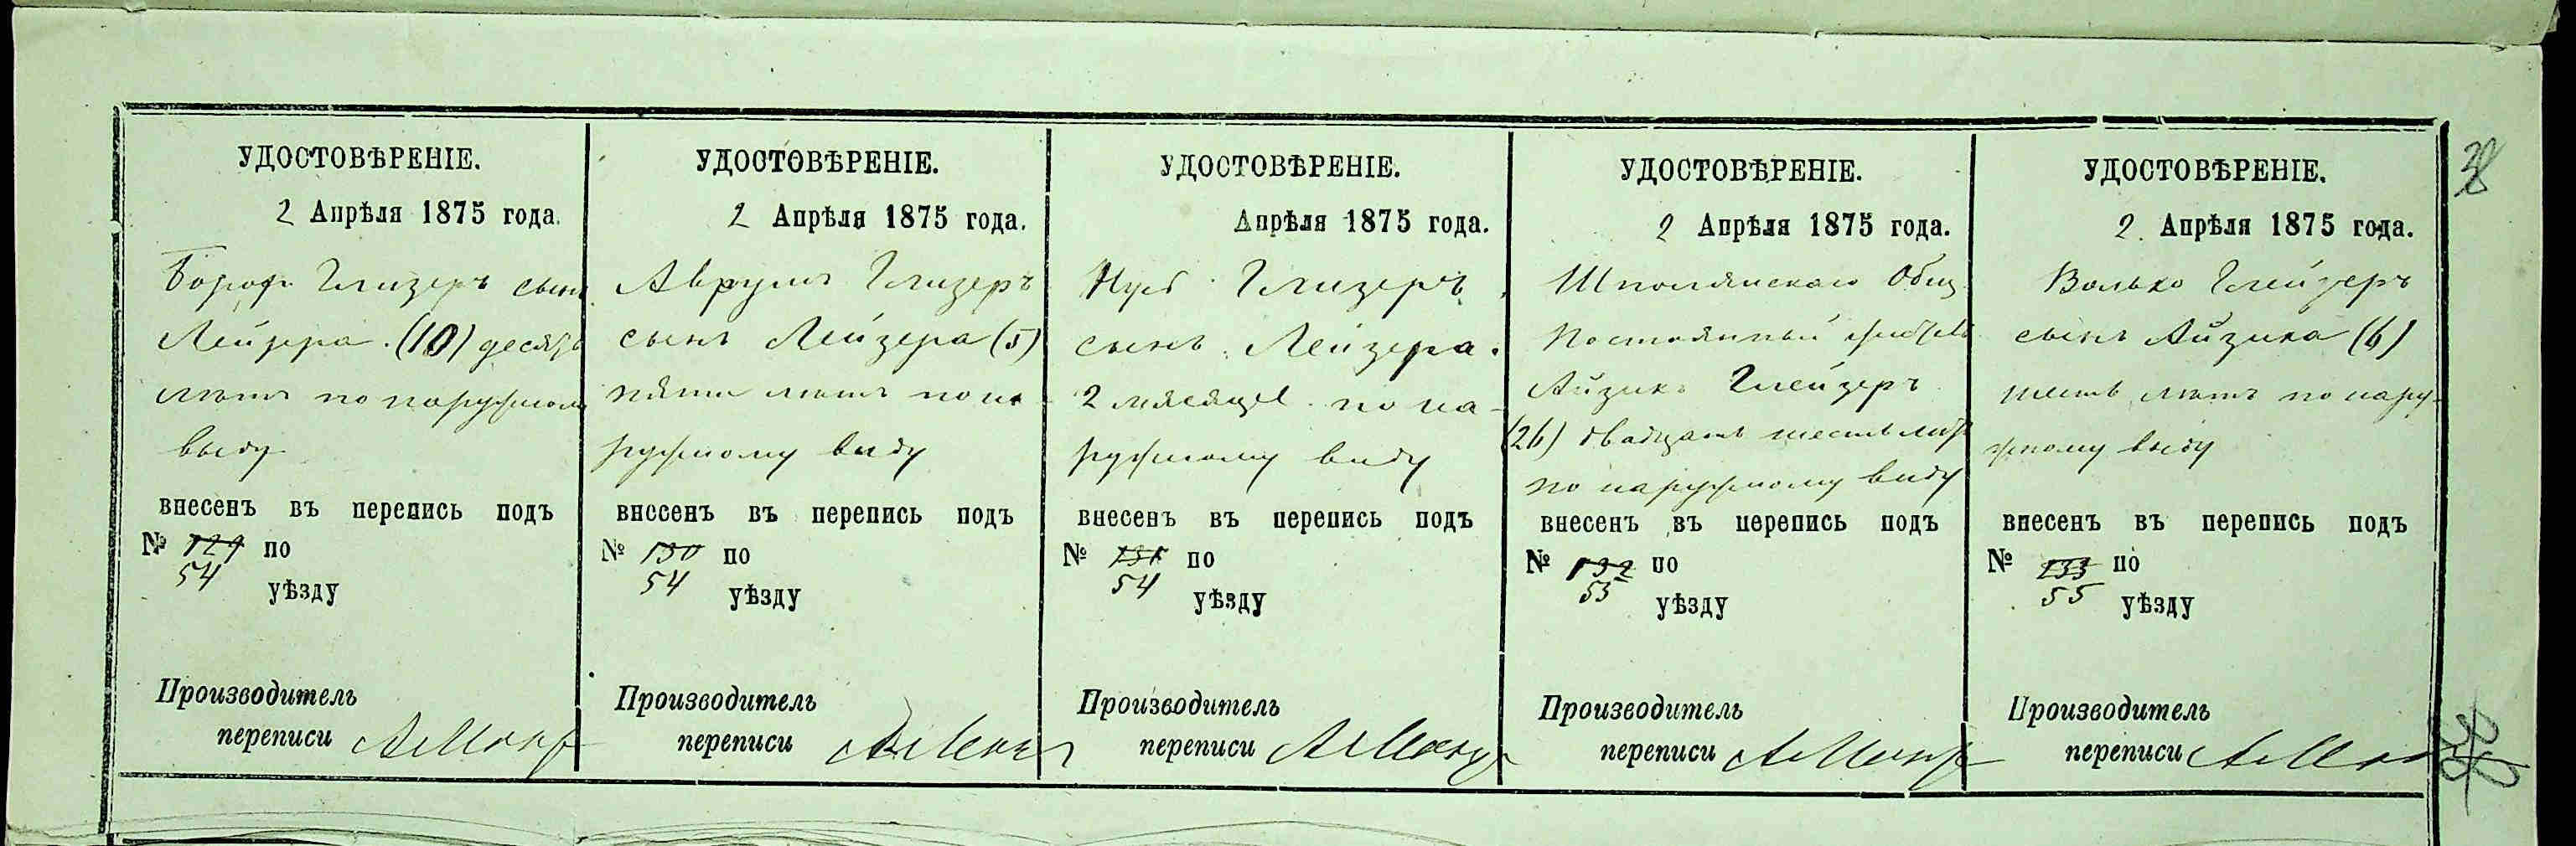 38
УДОСТОВѢРЕНІЕ.
2 Апрѣля 1875 года.
Глизеръ сынъ
Лейзера (10) десять
лѣтъ по наружному
виду
внесенъ въ перепись подъ
№ 129 по
54
уѣзду
Производитель
переписи
УДОСТОВѢРЕНІЕ.
2 Апрѣля 1875 года.
Аврумъ Глизеръ
сынъ Лейзера (5)
пяти лѣтъ по на
ружному виду
внесенъ въ перепись подъ
№ 130 по
54
уѣзду
Производитель
переписи
УДОСТОВѢРЕНІЕ.
Апрѣля 1875 года.
Глизеръ
сынъ Лейзера.
2 мѣсяцъ по на-
ружному виду
внесенъ въ перепись подъ
№ 131 по
54
уѣзду
Производитель
переписи
УДОСТОВѢРЕНІЕ.
2 Апрѣля 1875 года.
Шполянскаго Общ.
Постоянный житель
Айзикъ Глейзеръ
(26) двадцать шесть лѣтъ
по наружному виду
внесенъ въ перепись подъ
№ 132 по
55
уѣзду
Производитель
переписи
УДОСТОВѢРЕНІЕ.
2 Апрѣля 1875 года.
Волько Глейзеръ
сынъ Айзика (6)
шесть лѣтъ по нару-
жному виду
внесенъ въ перепись подъ
№ 133 по
55
уѣзду
Производитель
переписи